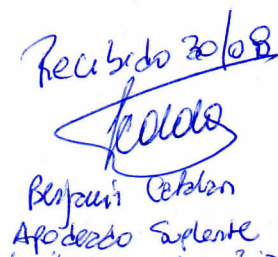 Recibido 30/08
Benjamin Catalan
Apoderado Suplente